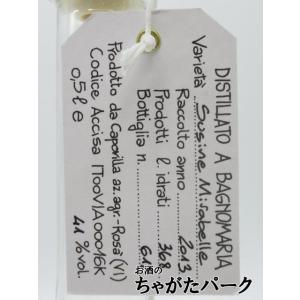 DISTILLATO A BAGNOMARIA
Varietà Susine Mirabelle
Raccolto anno 2013
Prodotti l. idrati 368
Bottiglia n.
Prodotto da Capovilla az.agr.-Rosà (VI)
Codice Accisa IT00VIA00016K
0,5 l e 41 %vol
お酒の
ちゃがたパーク